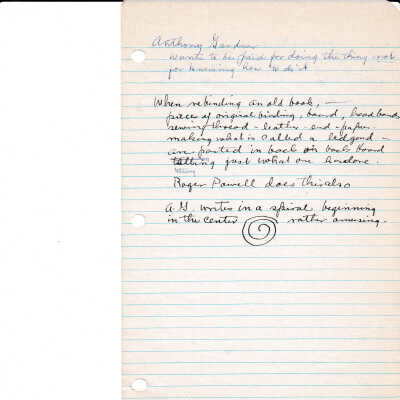 Anthony Gardner
wants to be paid for doing the thing - not
for knowing how to do it
When rebinding an old book, —
pieces of original binding, board, head band,
sewing thread - leather - end - paper
making what is called a
are pasted in back on back board
telling just what one has done.
telling
Roger Powell does this also
A.G. writes in a spiral beginning
in the center rather amusing.